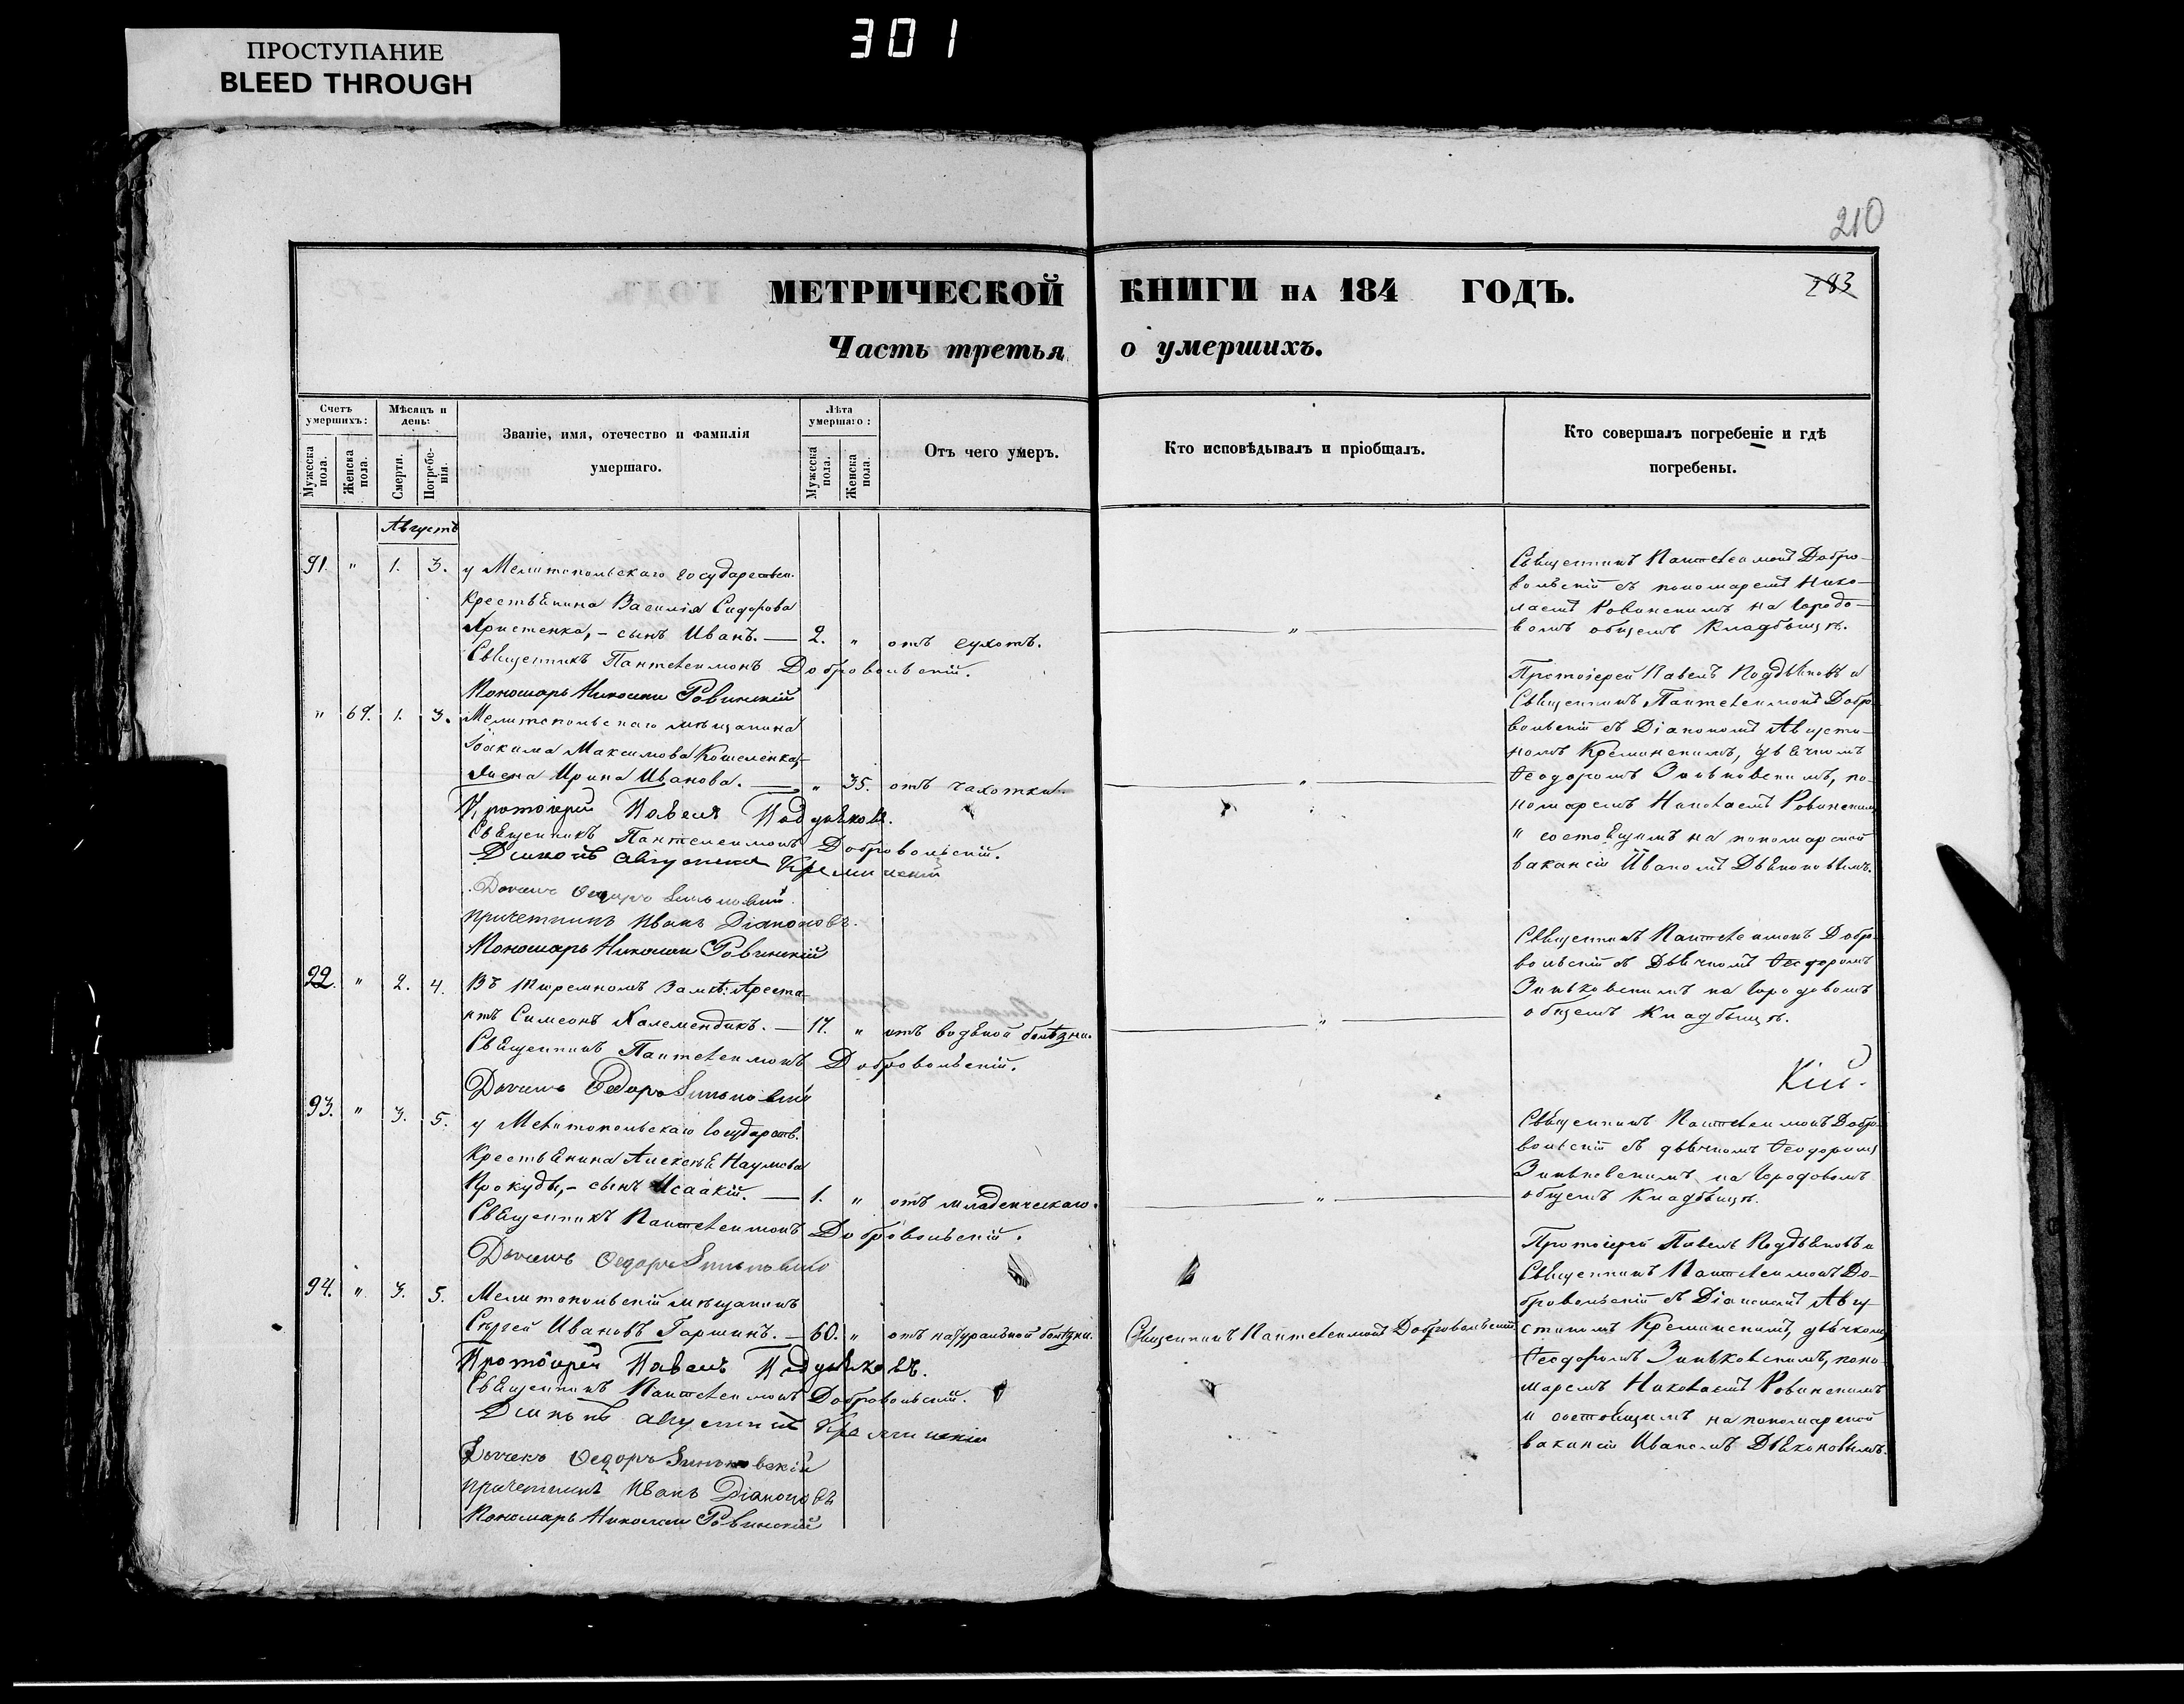 301
ПРОСТУПАНИЕ
BLEED THROUGH
210
283
МЕТРИЧЕСКОЙ КНИГИ НА 184 ГОДЪ.
Часть третья о умершихъ.
Счетъ умершихъ:
Мужеска пола.
Женска пола.
Мѣсяцъ и день:
Смерти.
Погребенія.
Званіе, имя, отечество и фамилія
умершаго.
Лѣта умершаго:
Мужеска пола.
Женска пола.
Отъ чего умеръ.
Кто исповѣдывалъ и пріобщалъ.
Кто совершалъ погребеніе и гдѣ
погребены.
Августъ
91. " 1. 3. у Мелитопольскаго государствен.
крестьянина Василія Сидорова
сынъ Иванъ. — 2. " отъ сухотъ.
Священникъ Пантелеимонъ Добровольскій.
Пономарь Николай Ровинскій
Священникъ Пантелеимонъ Добро-
вольскій съ пономаремъ Нико-
лаемъ Ровинскимъ на Городо-
вомъ общемъ Кладбищѣ.
" 69. 1. 3. Мелитопольскаго мѣщанина
Іоакима Максимова Кошеленка,-
жена Ирина Иванова. — " 35. отъ чахотки.
Протоіерей Павелъ Поддьяковъ.
Священникъ Пантелеимонъ Добровольскій.
Діаконъ Августинъ Кременскій
Дячекъ Ѳедоръ Зиньковскій
причетникъ Иванъ Діаконовъ.
Пономарь Николай Ровинскій
Протоіерей Павелъ Поддьяковъ и
Священникъ Пантелеимонъ Добро-
вольскій съ Діакономъ Августи-
номъ Кременскимъ, дьячкомъ
Ѳеодоромъ Зиньковскимъ, по-
номаремъ Николаемъ Ровинскимъ
и состоящимъ на пономарской
вакансіи Иваномъ Дьяконовымъ.
92. " 2. 4. Въ тюремномъ замкѣ: Ареста-
нтъ Симеонъ Калемендикъ. — 17. " отъ водяной болѣзни.
Священникъ Пантелеимонъ Добровольскій.
Дячекъ Ѳедоръ Зиньковскій
Священникъ Пантелеимонъ Добро-
вольскій съ Дьячкомъ Ѳеодоромъ
Зиньковскимъ на Городовомъ
общемъ Кладбищѣ.
93. " 3. 5. у Мелитопольскаго Государств.
Крестьянина Алексѣя Наумова
Прокуды,- сынъ Исаакій. — 1. " отъ младенческаго.
Священникъ Пантелеимонъ Добровольскій.
Дячекъ Ѳедоръ Зиньковскій
Священникъ Пантелеимонъ Добро-
вольскій съ дьячкомъ Ѳеодоромъ
Зиньковскимъ на Городовомъ
общемъ Кладбищѣ.
94. " 3. 5. Мелитопольскій мѣщанинъ
Сергѣй Ивановъ Гаршинъ. — 60. " отъ натуральной болѣзни.
Священникъ Пантелеимонъ Добровольскій
Протоіерей Павелъ Поддьяковъ.
Священникъ Пантелеимонъ Добровольскій.
Діаконъ Августинъ Кременскій
Дячекъ Ѳедоръ Зиньковскій
причетникъ Иванъ Діаконовъ
Пономарь Николай Ровинскій
Протоіерей Павелъ Поддьяковъ и
Священникъ Пантелеимонъ До-
бровольскій съ Діакономъ Авгу-
стиномъ Кременскимъ, дьячкомъ
Ѳеодоромъ Зиньковскимъ, поно-
маремъ Николаемъ Ровинскимъ
и состоящимъ на пономарской
вакансіи Иваномъ Дьяконовымъ.